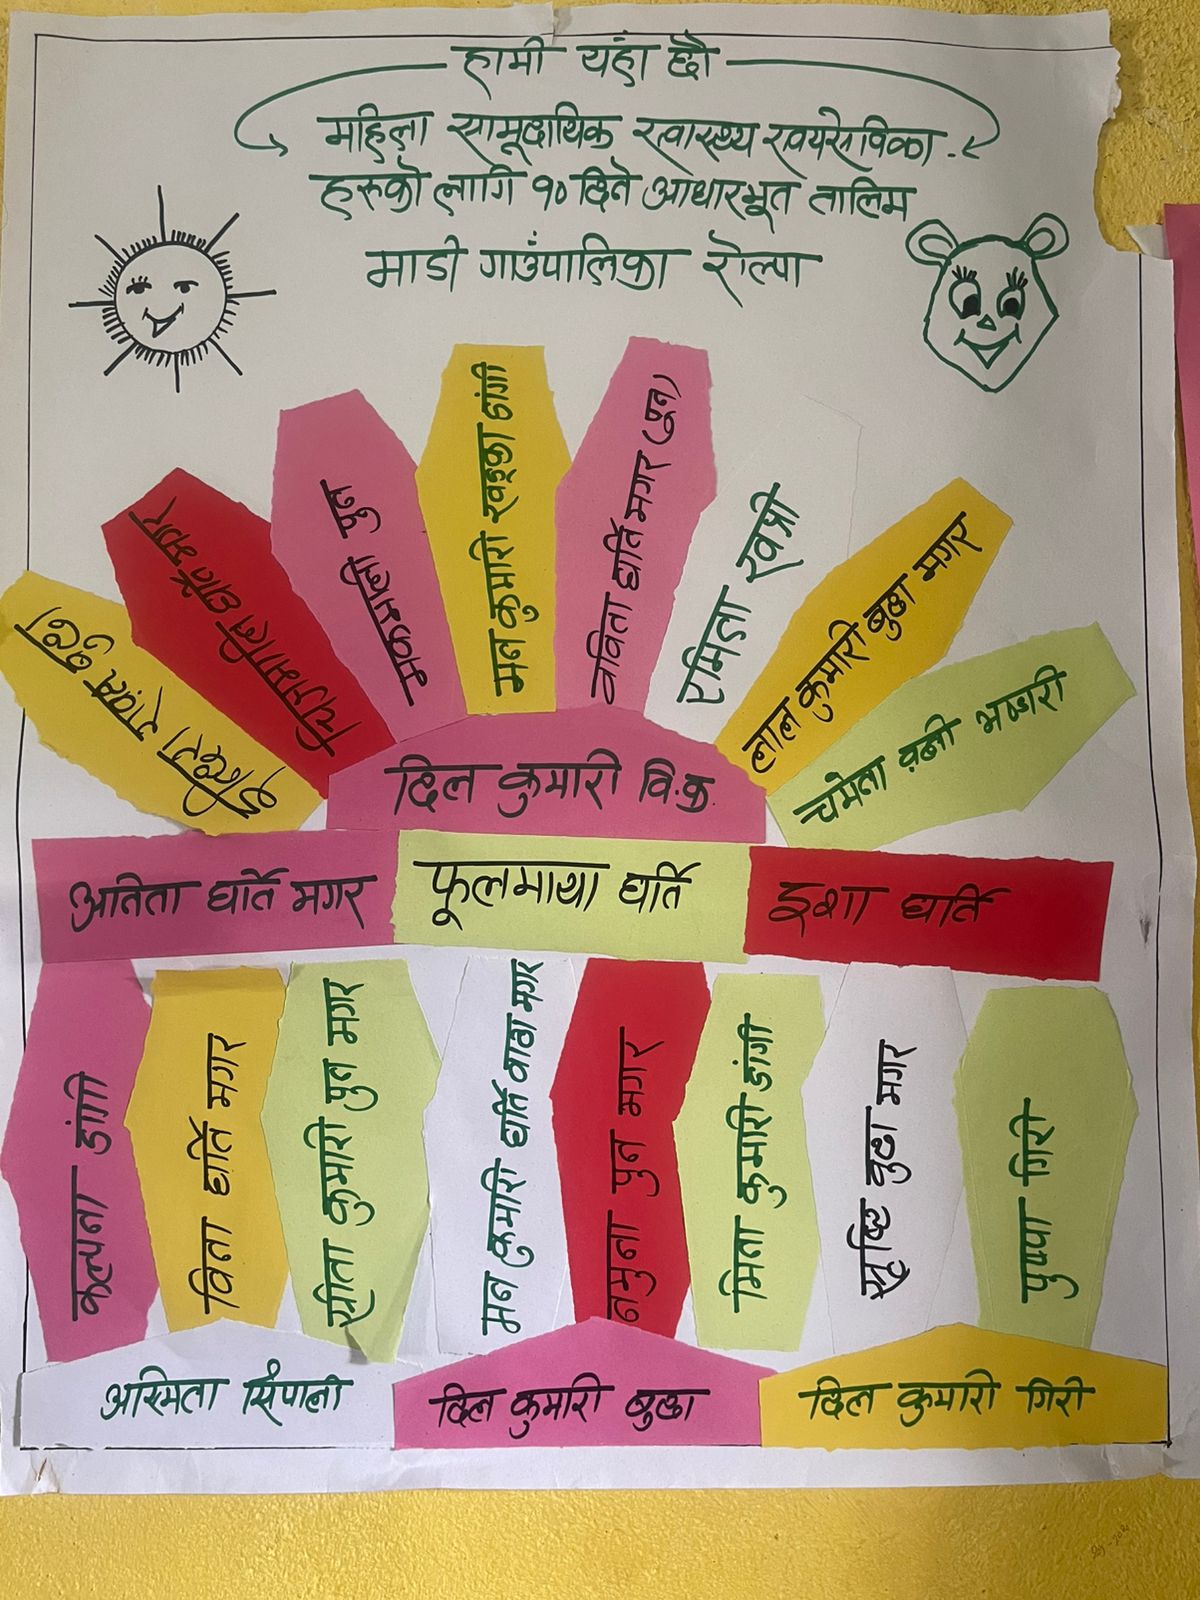 हामी यहाँ छौ
महिला सामूदायिक स्वास्थ्य स्वयंसेविका
हरुको लागि १० दिने आधारभूत तालिम
माडी गाउँपालिका रोल्पा
पुन
मन कुमारी खड्का डांगी
वविता घर्ति मगर (पुन)
रमिता खत्री
लाल कुमारी बुढा मगर
चमेता वली भण्डारी
दिल कुमारी वि.क.
अनिता घर्ति मगर
फूलमाया घर्ति
इशा घर्ति
कल्पना डांगी
विना घर्ति मगर
सीता कुमारी पुन मगर
मन कुमारी घर्ति मगर
जमुना पुन मगर
मिना कुमारी डांगी
सृष्टि बुढा मगर
पुष्पा गिरी
अस्मिता सिंपाली
दिल कुमारी बुढा
दिल कुमारी गिरी